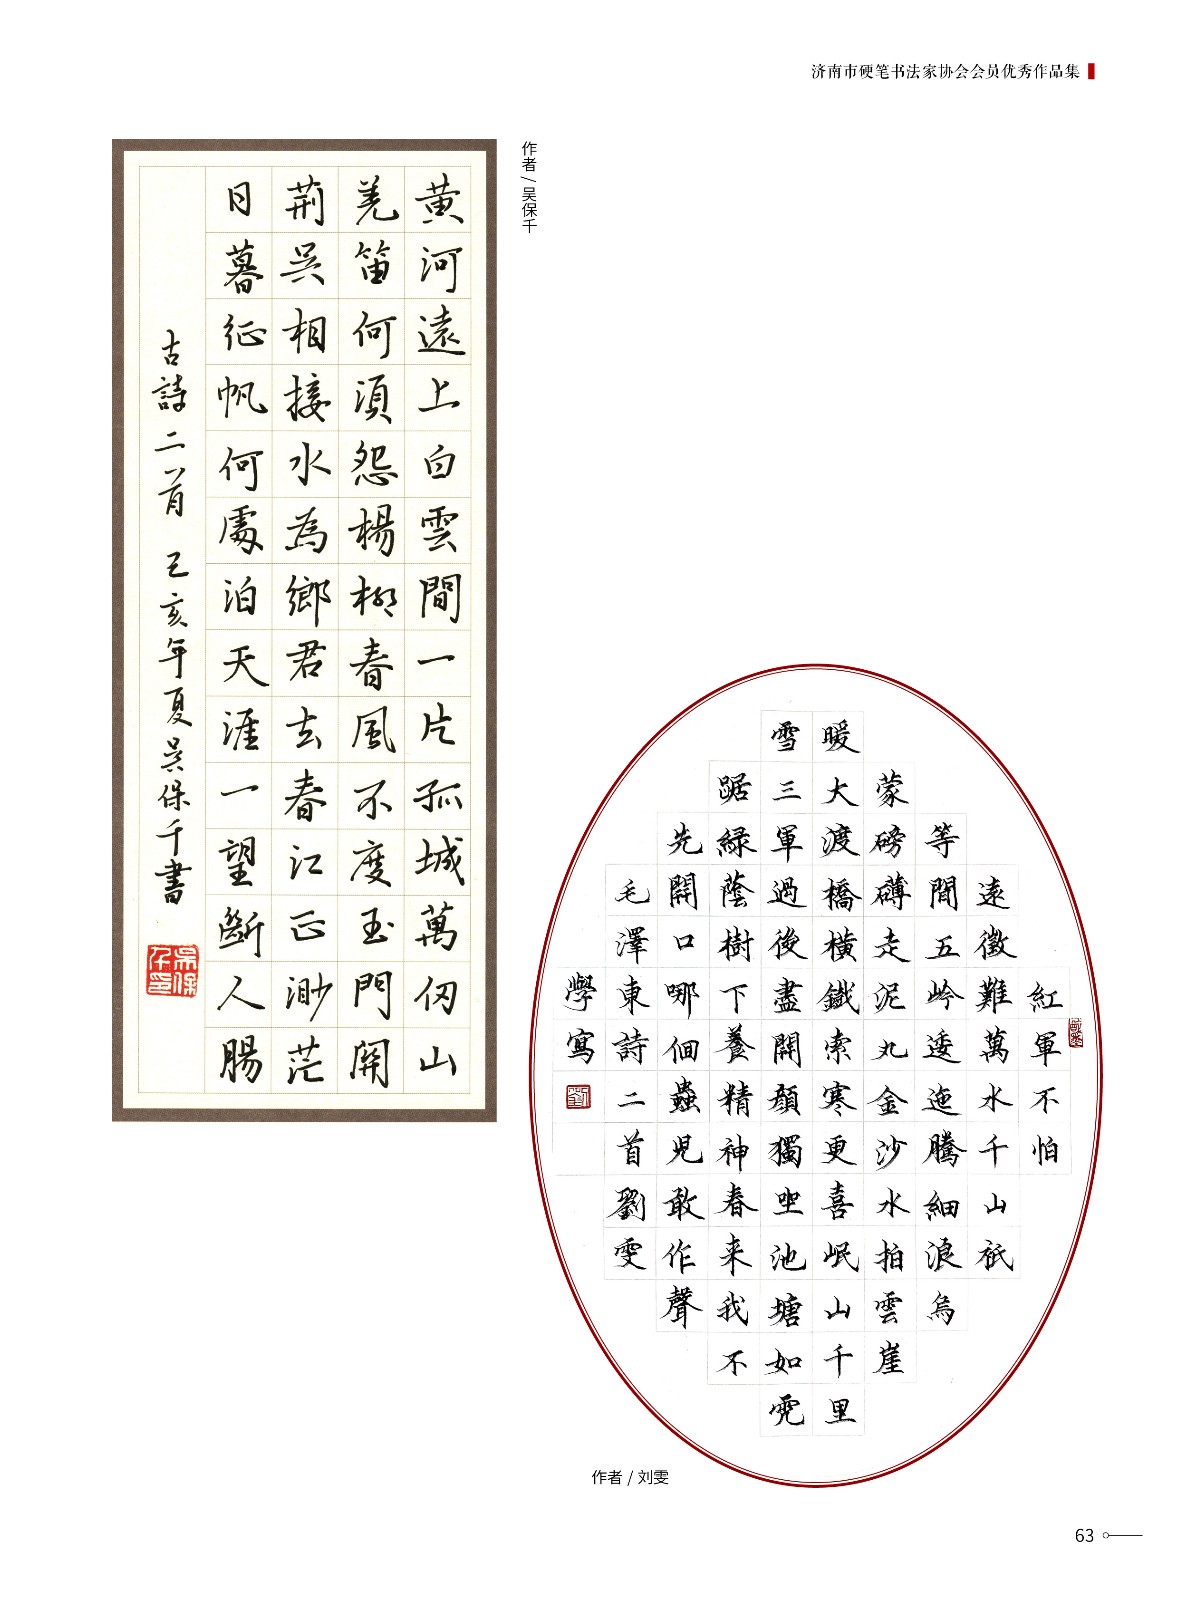 济南市硬笔书法家协会会员优秀作品集
作者/吴保千
黄河遠上白雲間一片孤城萬仞山
羌笛何須怨楊柳春風不度玉門關
荆吳相接水為鄉君去春江正渺茫
日暮征帆何處泊天涯一望斷人腸
古詩二首 己亥年夏吳保千書
吳保千印
紅軍不怕
遠徵難萬水千山衹
等閒五岭逶迤騰細浪烏
蒙磅礴走泥丸金沙水拍雲崖
暖大渡橋橫鐵索寒更喜岷山千里
雪三軍過後盡開顔獨坐池塘如虎
踞緑蔭樹下養精神春来我不
先開口哪個蟲児敢作聲
毛澤東詩二首劉雯
學寫
劉
作者/刘雯
63